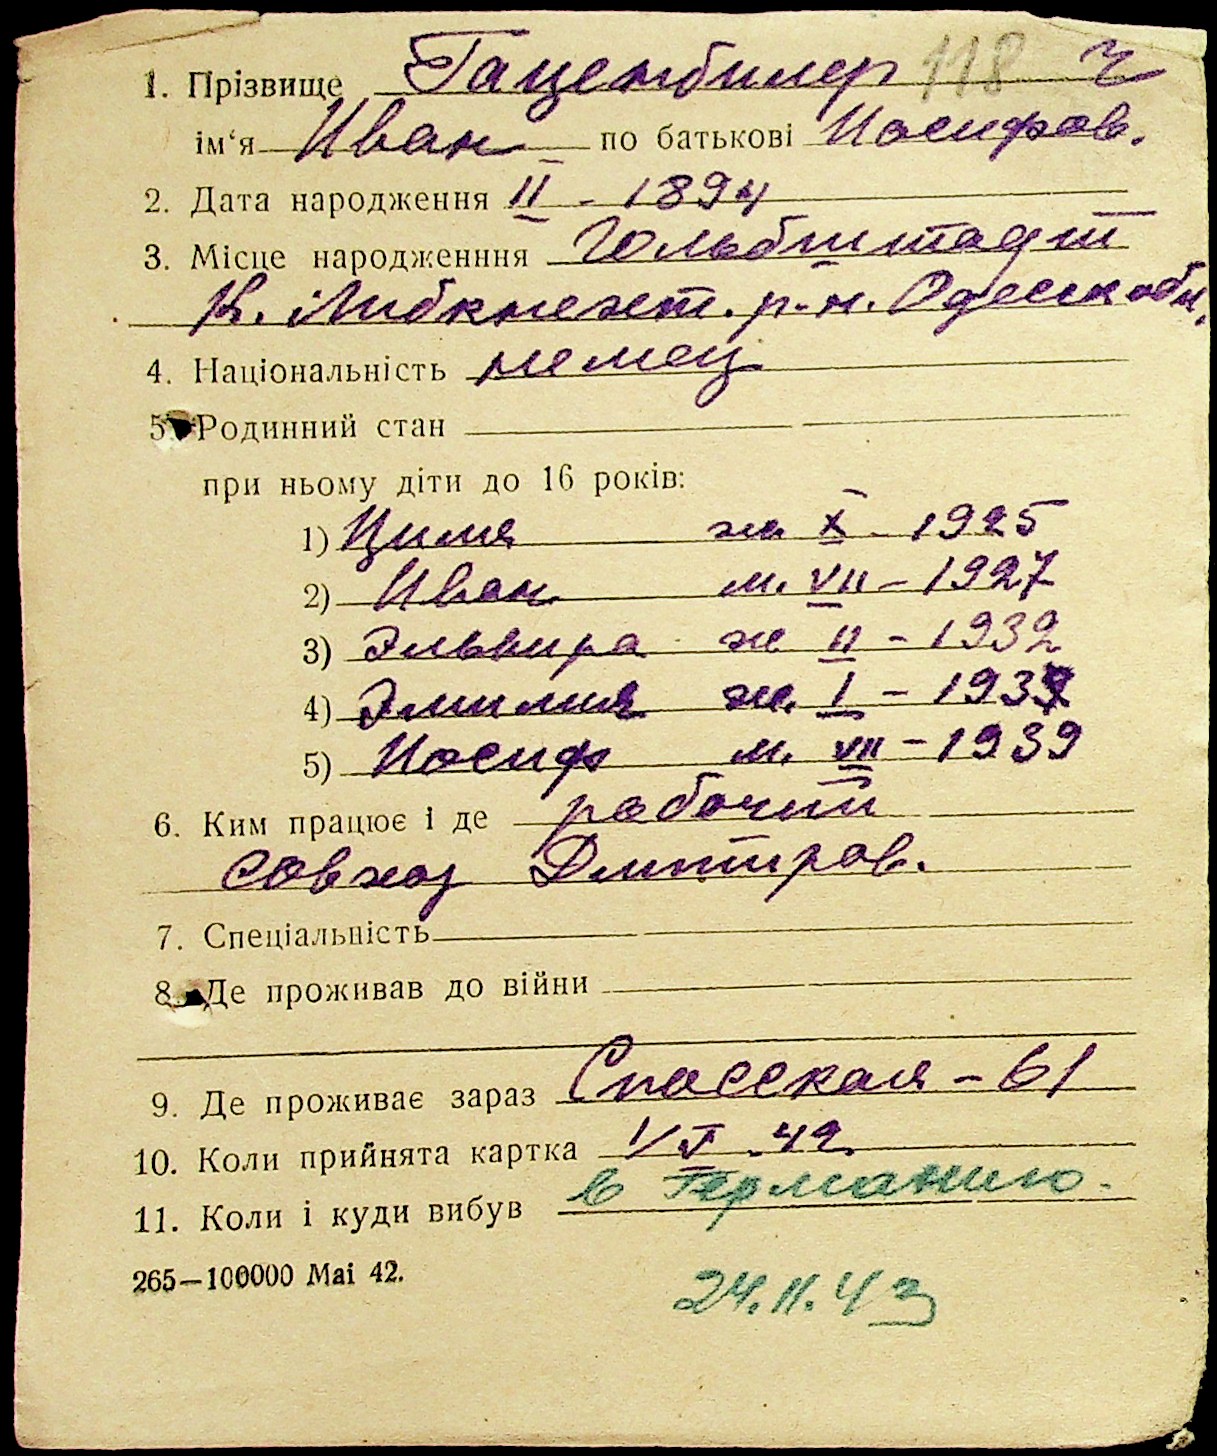 1. Прізвище Гаценбилер 118 г
ім‘я Иван по батькові Иосифов.
2. Дата народження II - 1894
3. Місце народженння Гольбштадт
К. Либкнехт. р-н. Одесск обл.
4. Національність немец
5. Родинний стан
при ньому діти до 16 років:
1) Циля ж. X - 1925
2) Иван м. VII - 1927
3) Эльвира ж II - 1932
4) Эмилия ж. I - 1937
5) Иосиф м. VII - 1939
6. Ким працює і де рабочий
Совхоз Дмитров.
7. Спеціальність
8. Де проживав до війни
9. Де проживає зараз Спасская - 61
10. Коли прийнята картка 1/V. 42.
11. Коли і куди вибув в Германию.
265—100000 Mai 42.
24.11.43